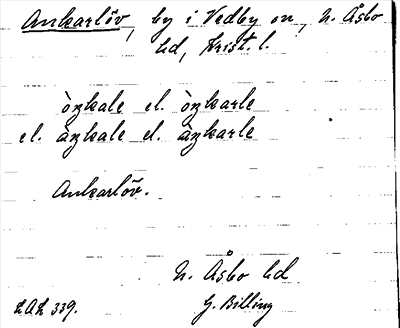 Ankarlöv, by i Vedby sn, N. Åsbo
hd, Krist. l.
òṇkale el. òṇkarle
el. àṇkale el. àṇkarle
Ankarlöv.
N. Åsbo hd
LAL 339. G. Billing